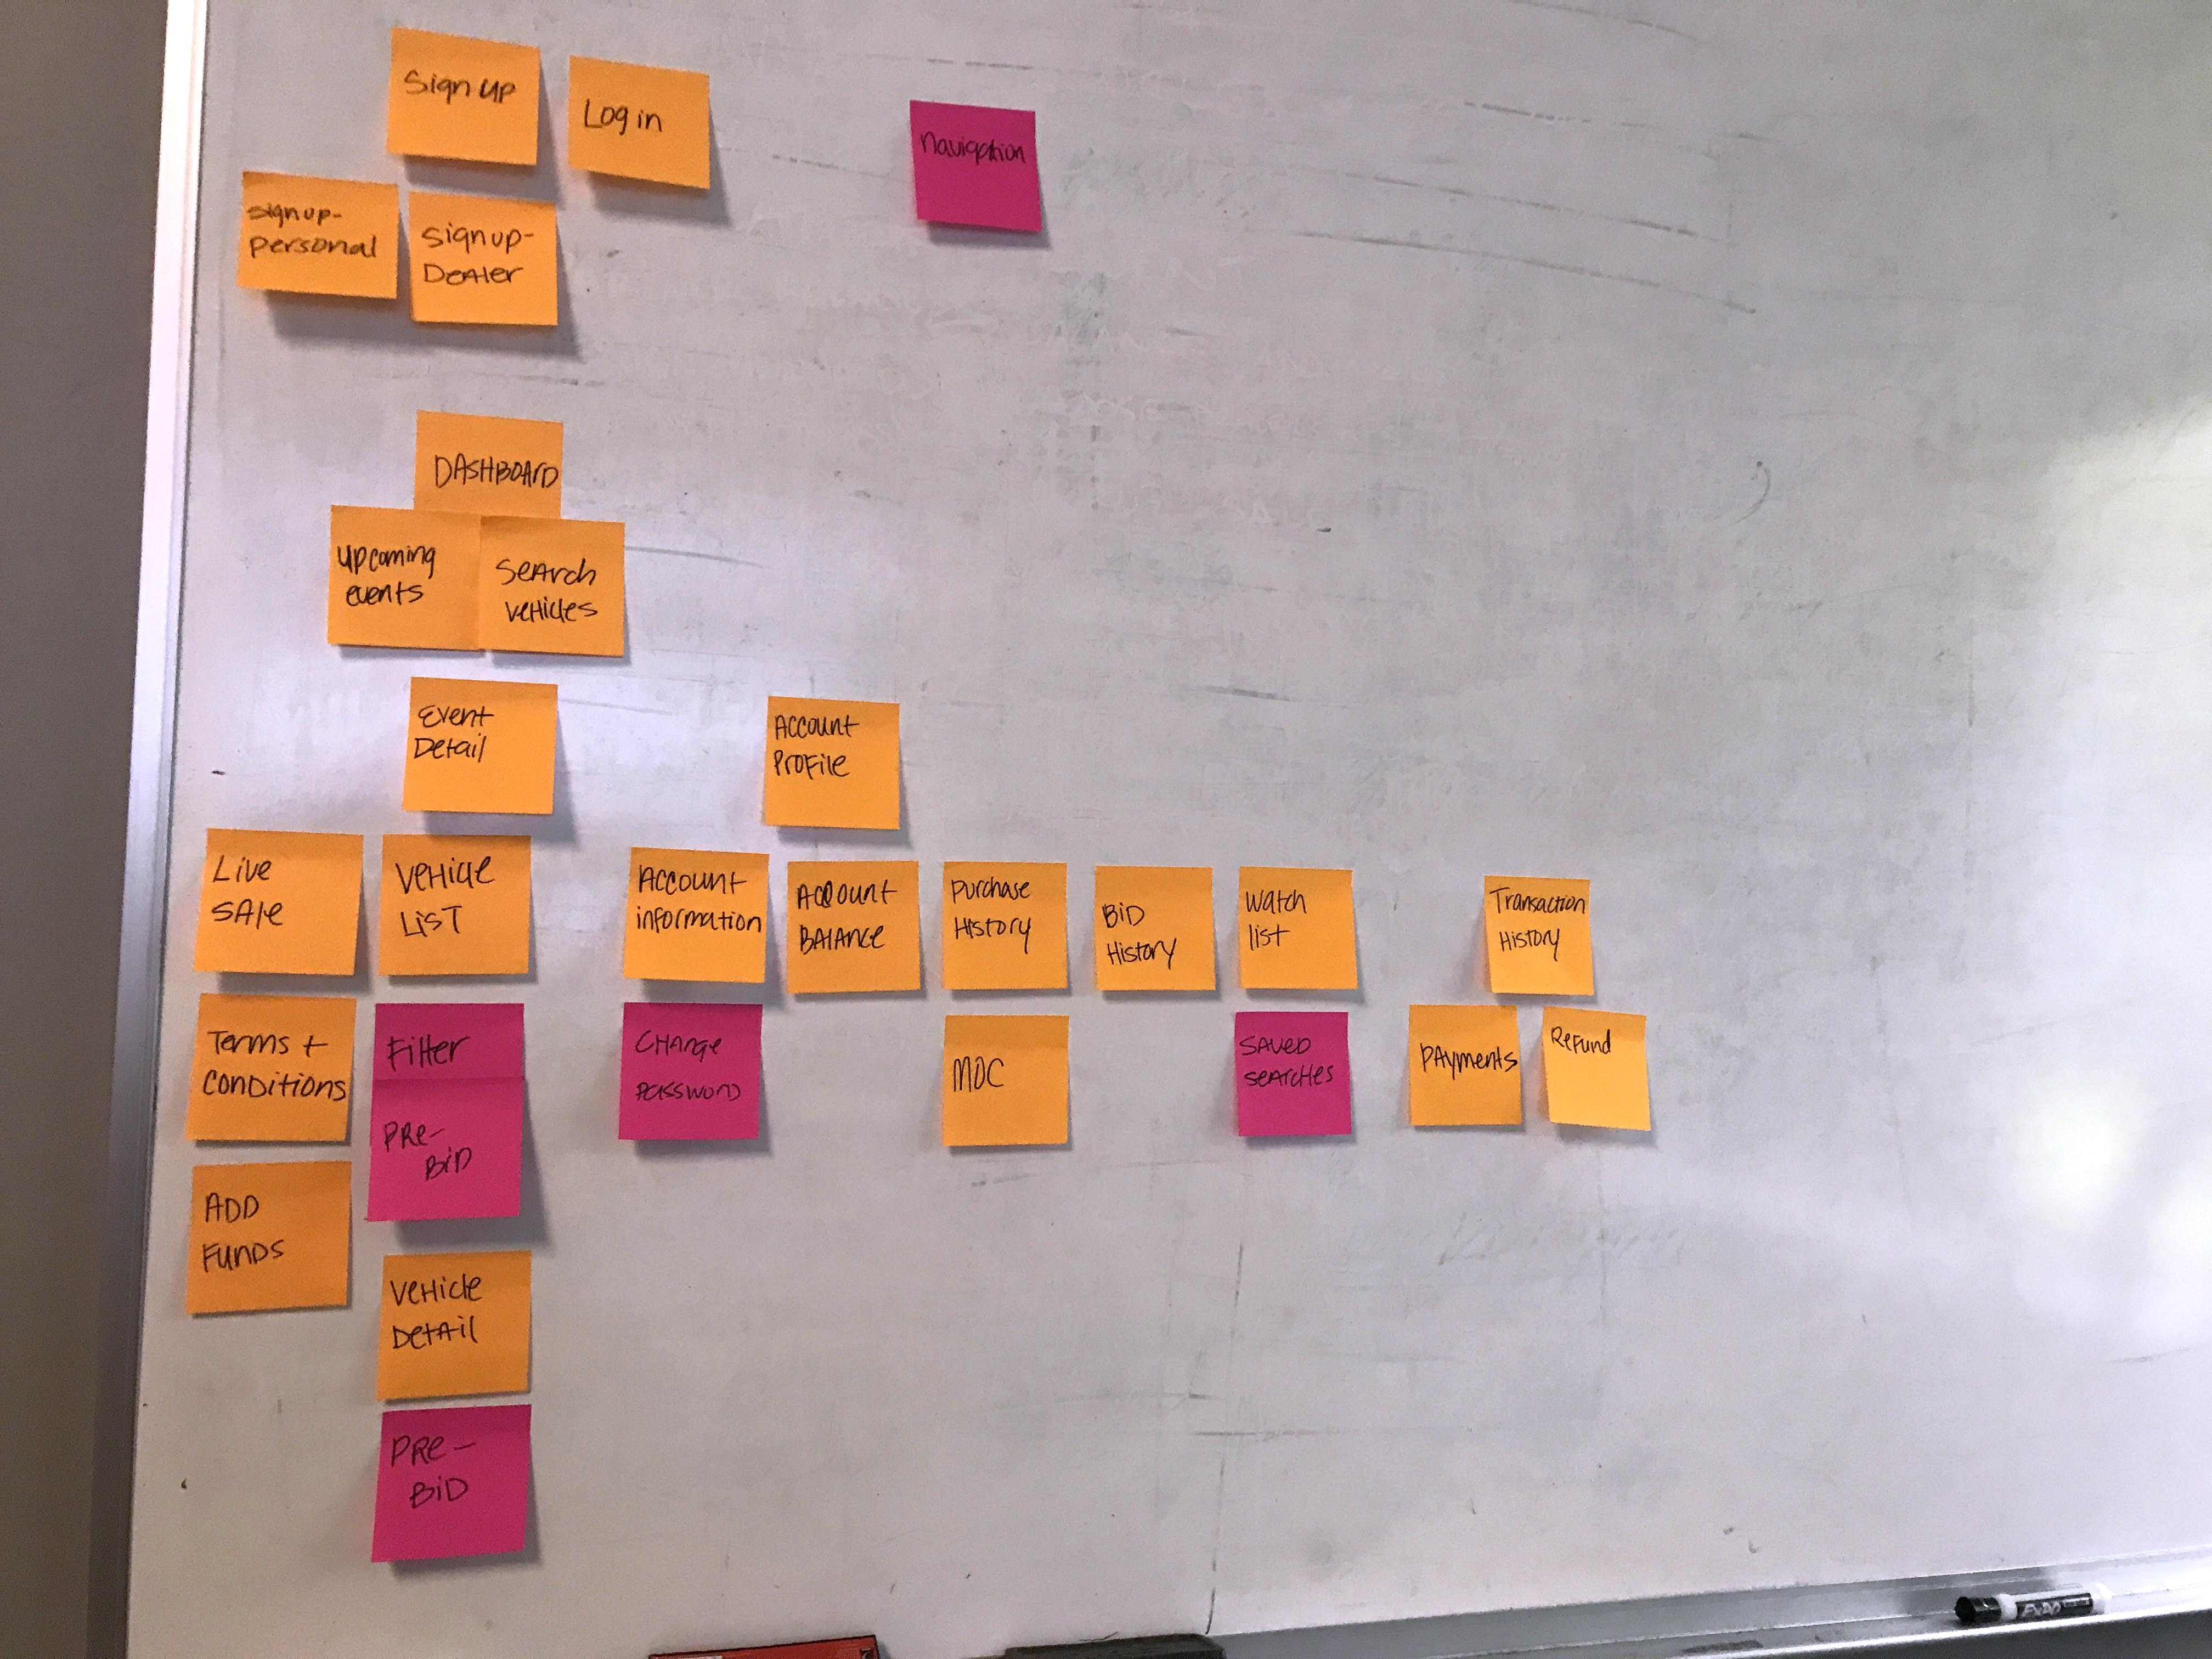 Sign up
Log in
navigation
signup-
personal
signup-
Dealer
DASHBOARD
upcoming
events
Search
vehicles
Event
Detail
Account
Profile
Live
Sale
Vehicle
List
Account
information
Account
Balance
Purchase
History
Bid
History
Watch
list
Transaction
History
Terms +
Conditions
Filter
PRe-
BiD
Change
Password
MOC
Saved
Searches
Payments
Refund
ADD
Funds
Vehicle
Detail
PRe-
BiD
EXPO